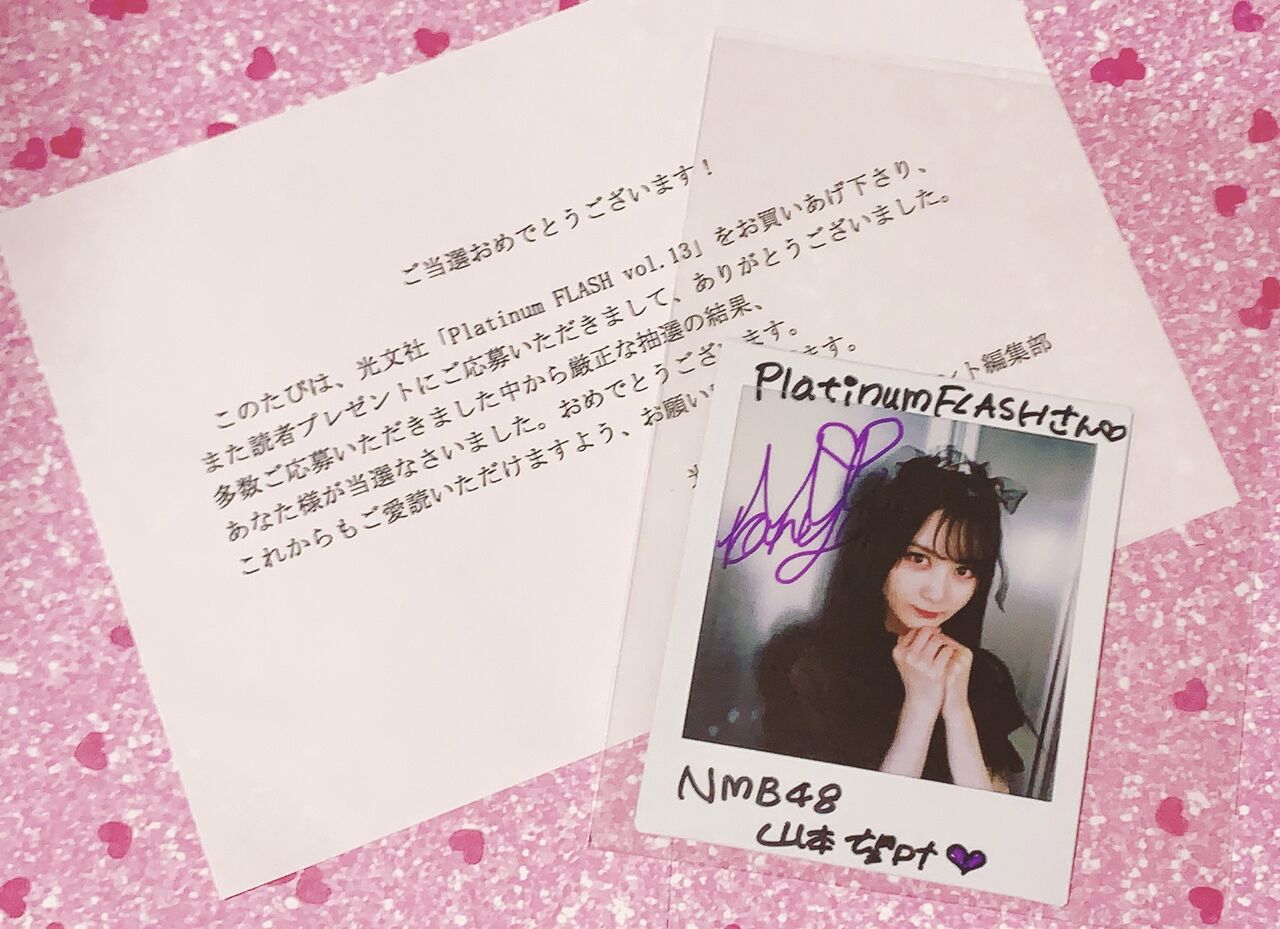 ご当選おめでとうございます！
このたびは、光文社「Platinum FLASH vol.13」をお買いあげ下さり、
また読者プレゼントにご応募いただきまして、ありがとうございました。
多数ご応募いただきました中から厳正な抽選の結果、
あなた様が当選なさいました。おめでとうございます。
これからもご愛読いただけますよう、お願い
ます。
ント編集部
PlatinumFLASHさん♡
NMB48
山本望叶